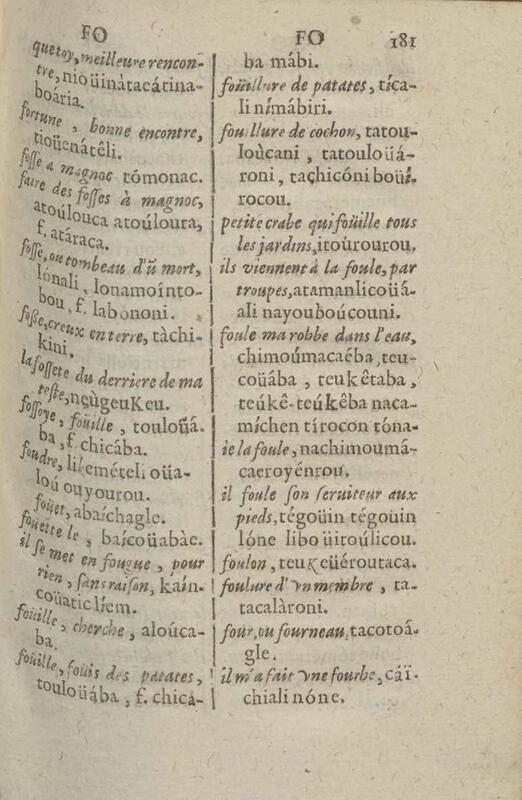 FO
quetoy, meilleure rencon-
tre, nioüinàtacátina-
boária.
fortune, bonne encontre,
tioüenátêli.
fosse a magnoc tômonac.
faire des fosses à magnoc,
atoúlouca atoúloura,
f. atáraca.
fosse, ou tombeau d'ũ mort,
lónali, lonamoínto-
bou, f. labononi.
foße, creux en terre, tàchi-
kini.
la fossete du derriere de ma
teste, nçùgeuKeu.
fossoye, foüille, toulouá.
ba, f. chicába.
foudre, likemételi oüa-
loú ouyourou.
foüet, abaíchagle.
fouette le, baícoüabàe.
il se met en fougue, pour
rien, sans raison, kaín.
coüatic líem.
foüille, cherche, aloúca-
ba.
foüille, foüis des patates,
touloüába, f. chicá-
FO 181
ba mábi.
foüillure de patates, tíca-
li nímábiri.
fouillure de cochon, tatou-
loùcani, tatouloüá-
roni, tachicóni boüí-
rocou.
petite crabe qui foüille tous
les jardins, itoùrourou.
ils viennent à la foule, par
troupes, atamanlicoüá-
ali nayouboúcouni.
foule ma robbe dans l'eau,
chimoúmacaéba, teu-
coüába, teukêtaba,
teúkê-teúkêba naca-
míchen tírocon tóna-
ie la foule, nachimoumá-
caeroyénrou.
il foule son seruiteur aux
pieds, tégoüin tégoüin
lóne libo üitoúlicou.
foulon, teuKeüéroutaca.
foulure d'vn membre, ta-
tacalàroni.
four, ou fourneau, tacotoá-
gle.
il m'a fait vne fourbe, cáï-
chiali nóne.